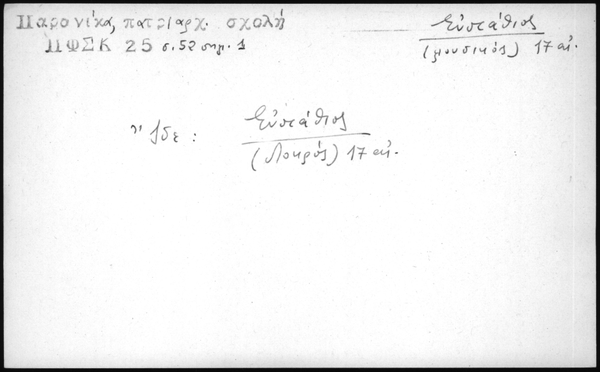 Παρονίκα, πατριαρχ. σχολή
ΠΦΣΚ 25 σ. 52 σημ. 1
Εὐστάθιος
(μουσικός) 17 αἰ.
Ἴδε: Εὐστάθιος
(Λοκρός) 17 αἰ.